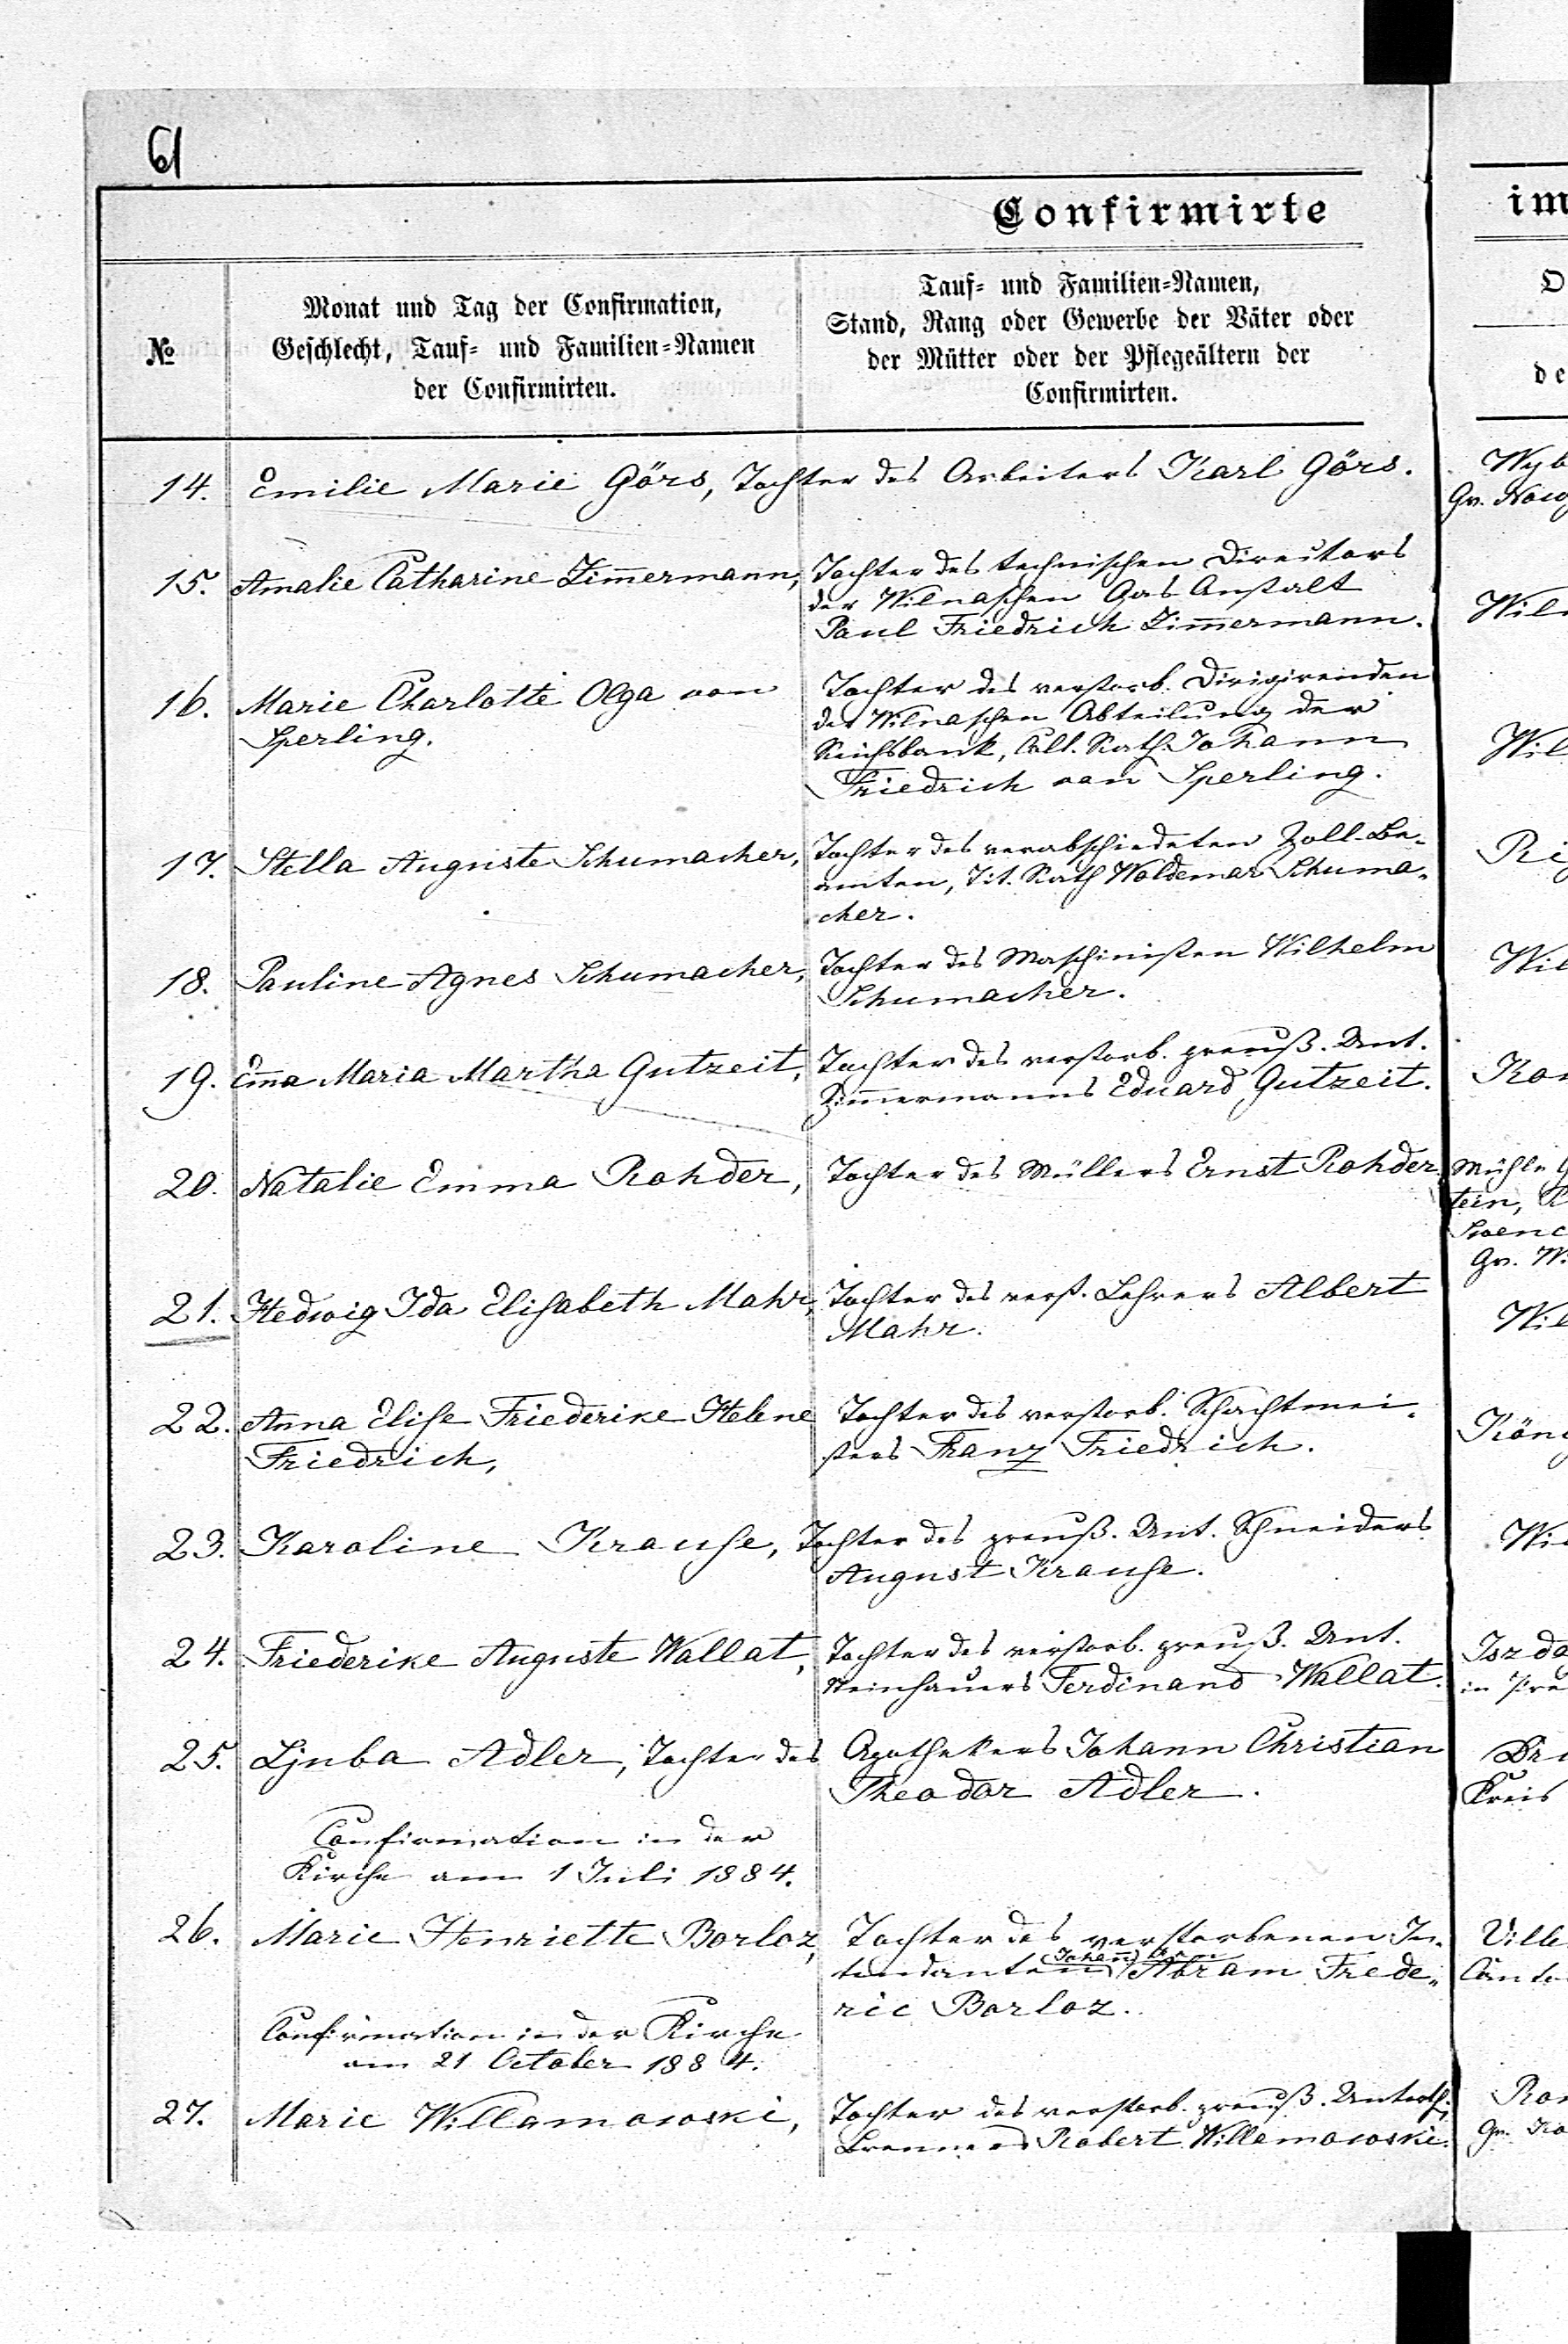 61
Confirmirte
im
№
Monat und Tag der Confirmation,
Geschlecht, Tauf- und Familien-Namen
der Confirmirten.
Tauf- und Familien-Namen,
Stand, Rang oder Gewerbe der Väter oder
der Mütter oder der Pflegeältern der
Confirmirten.
14. Emilie Marie Görs, Tochter des Arbeiters Karl Görs.
15. Amalie Catharine Zimmermann, Tochter des technischen Directors
der Wilnaschen Gas Anstalt
Paul Friedrich Zimmermann.
16. Marie Charlotte Olga von Tochter des verstorb. Dirigirenden
Sperling. der Wilnaschen Abteilung der
Reichsbank, Coll. Rath Johann
Friedrich von Sperling.
17. Stella Auguste Schumacher, Tochter des verabschiedeten Zoll-Be-
amten, Tit. Rath Woldemar Schuma-
cher.
18. Pauline Agnes Schumacher, Tochter des Maschinisten Wilhelm
Schumacher.
19. Emma Maria Martha Gutzeit, Tochter des verstorb. preuß. Unt.
Zimmermanns Eduard Gutzeit.
20. Natalie Emma Rohder, Tochter des Müllers Ernst Rohder.
21. Hedwig Ida Elisabeth Mahr, Tochter des verst. Lehrers Albert
Mahr.
22. Anna Elise Friederike Helene Tochter des verstorb. Schachtmei-
Friedrich, sters Franz Friedrich.
23. Karoline Krause, Tochter des preuß. Unt. Schneiders
August Krause.
24. Friederike Auguste Wallat, Tochter des verstorb. preuß. Unt.
Steinhauers Ferdinand Wallat.
25. Ljuba Adler, Tochter des Apothekers Johann Christian
Theodor Adler.
Confirmation in der
Kirche am 1 Juli 1884.
26. Marie Henriette Borloz, Tochter des verstorbenen In-
tendanten (Johann) Abram Frede-
ric Borloz.
Confirmation in der Kirche
am 21 October 1884.
27. Marie Willamowski, Tochter des verstorb. preuß. Unterth.
Brenners Robert Willamowski.